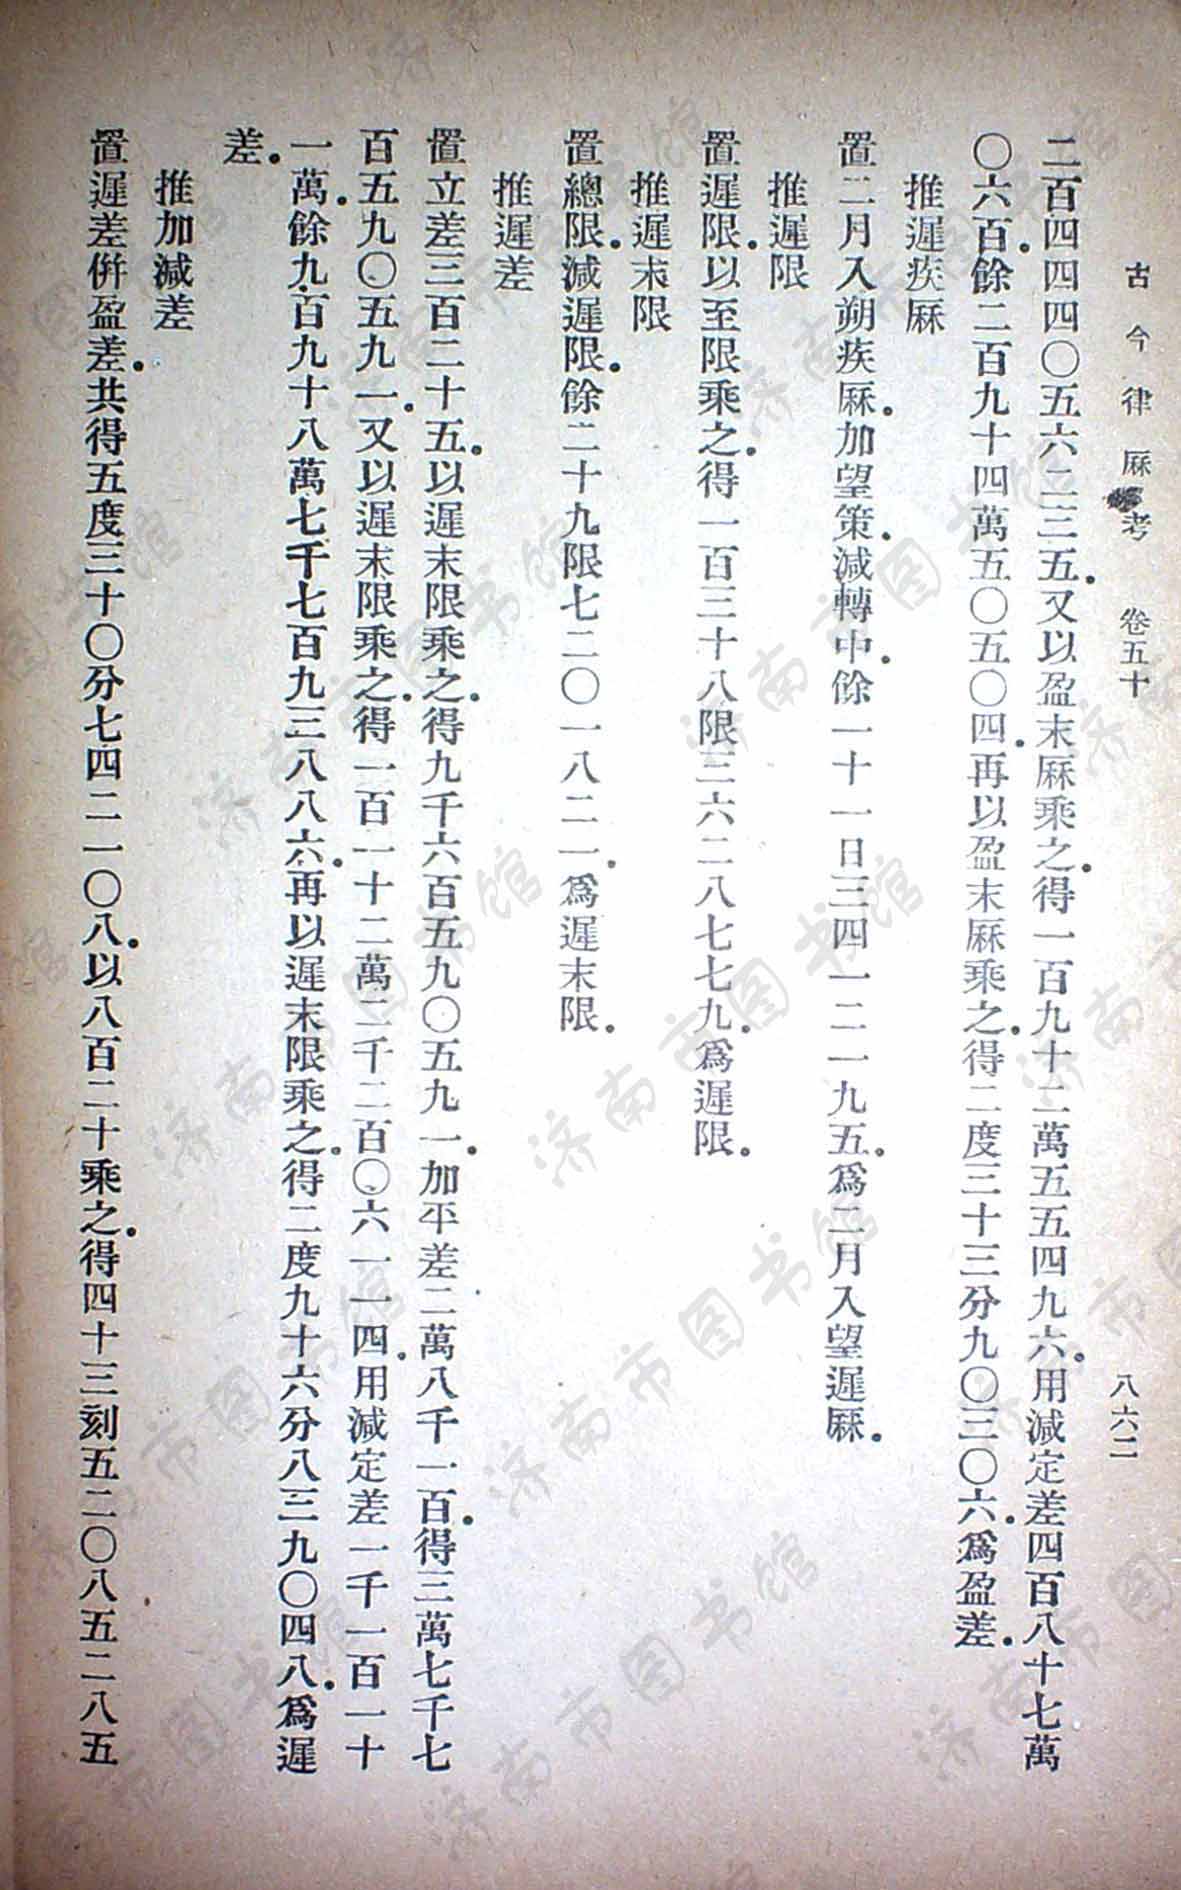 古今律厤考 卷五十 八六二
二百四四四〇五六二三五。又以盈末厤乘之。得一百九十二萬五五四九六。用減定差四百八十七萬
〇六百。餘二百九十四萬五〇五〇四。再以盈末厤乘之。得二度三十三分九〇三〇六。爲盈差。
推遲疾厤
置二月入朔疾厤。加望策。減轉中。餘一十一日三四一二一九五。爲二月入望遲厤。
推遲限
置遲限。以至限乘之。得一百三十八限三六二八七七九。爲遲限。
推遲末限
置總限。減遲限。餘二十九限七二〇一八二一。爲遲末限。
推遲差
置立差三百二十五。以遲末限乘之。得九千六百五九〇五九一。加平差二萬八千一百。得三萬七千七
百五九〇五九一。又以遲末限乘之。得一百一十二萬二千二百〇六一一四。用減定差一千一百一十
一萬。餘九百九十八萬七千七百九三八八六。再以遲末限乘之。得二度九十六分八三九〇四八。爲遲
差。
推加減差
置遲差併盈差。共得五度三十〇分七四二一〇八。以八百二十乘之。得四十三刻五二〇八五二八五
济南市图书馆